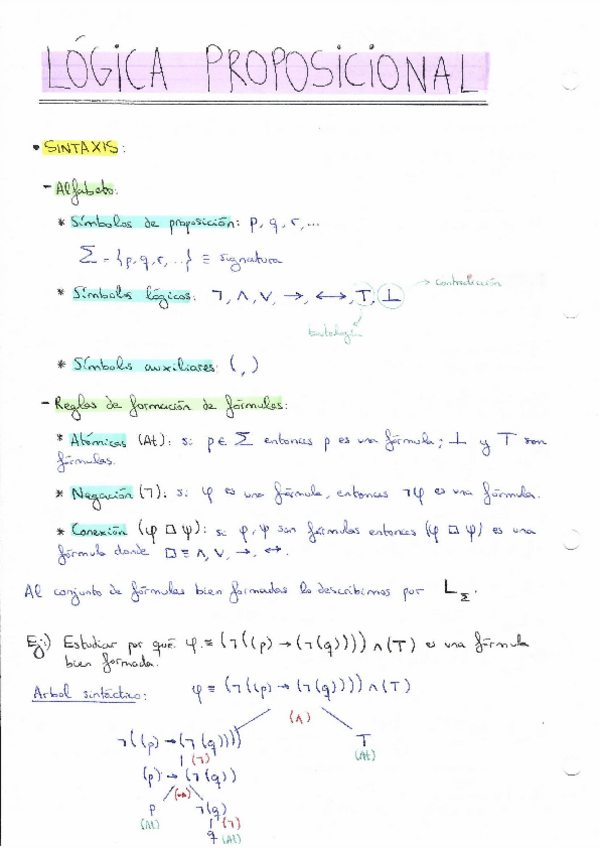 LÓGICA PROPOSICIONAL
• SINTAXIS:
- Alfabeto:
* Símbolos de proposición: p, q, r, ...
Σ = {p, q, r, ...} ≡ signatura
* Símbolos lógicos: ¬, ∧, ∨, →, ↔, T, ⊥ → contradicción
tautología
* Símbolos auxiliares: ( , )
- Reglas de formación de fórmulas:
* Atómicas (At): si p ∈ Σ entonces p es una fórmula; ⊥ y T son
fórmulas.
* Negación (¬): si φ es una fórmula, entonces ¬φ es una fórmula.
* Conexión (φ □ ψ): si φ, ψ son fórmulas entonces (φ □ ψ) es una
fórmula donde □ ≡ ∧, ∨, →, ↔.
Al conjunto de fórmulas bien formadas lo describimos por L_Σ.
Ej:) Estudiar por qué φ ≡ (¬((p) → (¬(q)))) ∧ (T) es una fórmula
bien formada.
Arbol sintáctico: φ ≡ (¬((p) → (¬(q)))) ∧ (T)
(∧)
¬((p) → (¬(q)))) T
(¬) (At)
(p) → (¬(q))
(→)
p ¬(q)
(At) (¬)
q (At)